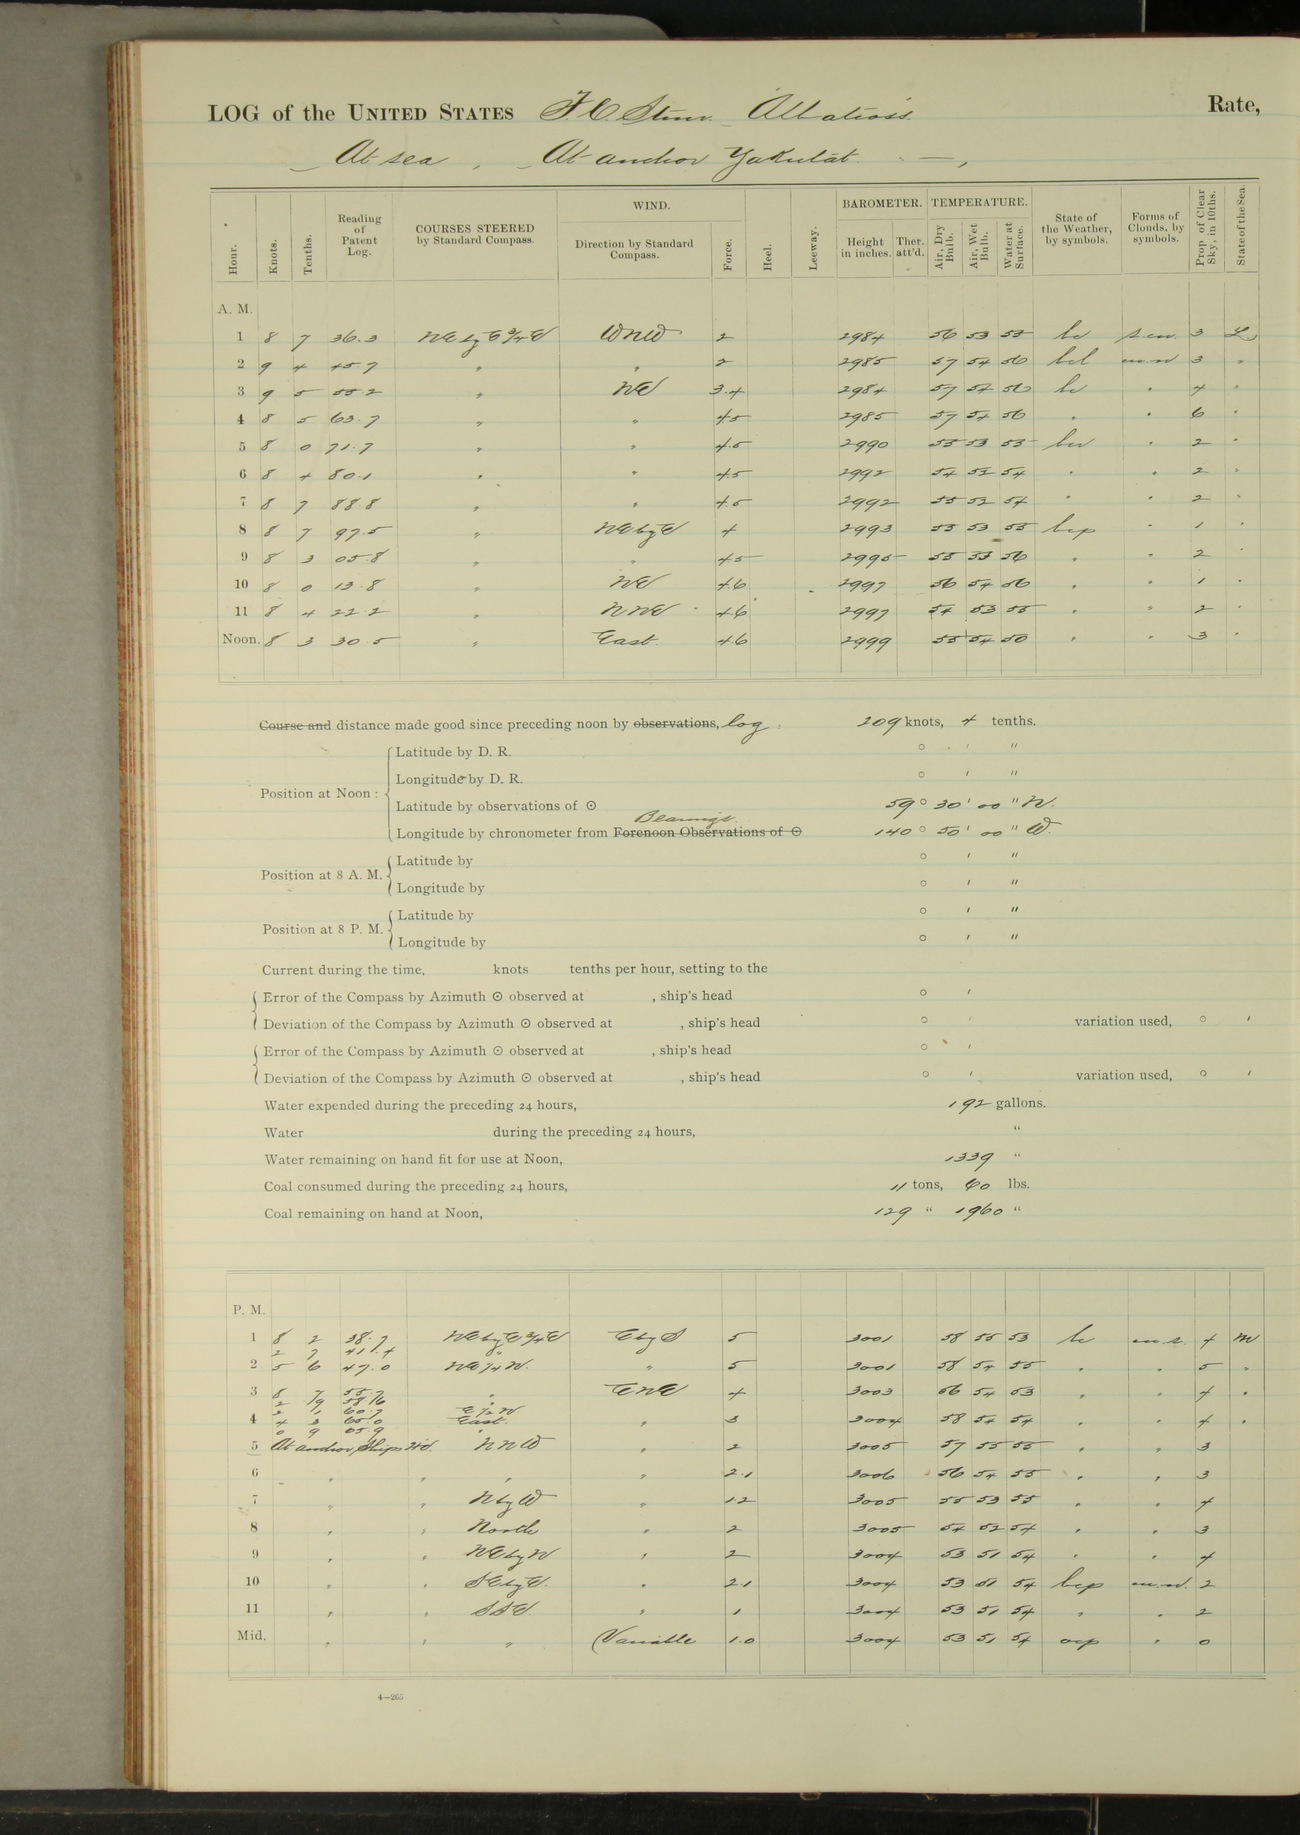 LOG of the UNITED STATES F. C. Stmr. Albatross Rate,
At sea, At anchor Yakutat
Hour. Knots. Tenths. Reading of Patent Log. COURSES STEERED by Standard Compass. WIND. Direction by Standard Compass. Force. Heel. Leeway. BAROMETER. Height in inches. Ther. att'd. TEMPERATURE. Air, Dry Bulb. Air, Wet Bulb. Water at Surface. State of the Weather, by symbols. Forms of Clouds, by symbols. Prop. of Clear Sky, in 10ths. State of the Sea.
A. M.
1 8 7 36.3 NE by E 3/4 E WNW 2 2984 56 53 55 bc 3 L
2 9 4 45 7 " " 2 2985 57 54 56 bcl 3 "
3 9 5 55 2 " NE 3.4 2984 57 54 56 bc " 4 "
4 8 5 63.7 " " 4.5 2985 57 54 56 " " 6 "
5 8 0 71.7 " " 4.5 2990 55 53 55 " 2 "
6 8 4 80.1 " " 4.5 2992 54 52 54 " " 2 "
7 8 7 88 8 " " 4.5 2992 55 52 54 " " 2 "
8 8 7 97.5 " NE by E 4 2993 55 53 55 bcp " 1 "
9 8 3 05.8 " " 4.5 2995 55 53 56 " " 2 "
10 8 0 13.8 " NE 4.6 2997 56 54 56 " " 1 "
11 8 4 22 2 " NNE 4.6 2997 54 53 55 " " 2 "
Noon. 8 3 30 5 " East. 4.6 2999 55 54 50 " " 3 "
Course and distance made good since preceding noon by observations, log. 209 knots, 4 tenths.
Latitude by D. R. ° ′ ″
Longitude by D. R. ° ′ ″
Position at Noon :
Latitude by observations of ⊙ 59° 30′ 00″ N.
Bearings.
Longitude by chronometer from Forenoon Observations of ⊙ 140° 50′ 00″ W.
Latitude by ° ′ ″
Position at 8 A. M.
Longitude by ° ′ ″
Latitude by ° ′ ″
Position at 8 P. M.
Longitude by ° ′ ″
Current during the time, knots tenths per hour, setting to the
Error of the Compass by Azimuth ⊙ observed at , ship's head ° ′
Deviation of the Compass by Azimuth ⊙ observed at , ship's head ° ′ variation used, ° ′
Error of the Compass by Azimuth ⊙ observed at , ship's head ° ′
Deviation of the Compass by Azimuth ⊙ observed at , ship's head ° ′ variation used, ° ′
Water expended during the preceding 24 hours, 192 gallons.
Water during the preceding 24 hours, "
Water remaining on hand fit for use at Noon, 1339 "
Coal consumed during the preceding 24 hours, 11 tons, 60 lbs.
Coal remaining on hand at Noon, 129 " 1960 "
P. M.
1 8 2 38.7 NE by E 3/4 E E by S 5 3001 58 55 53 bc 4 M
2 7 41.4 "
2 5 6 47.0 NE 1/4 N. " 5 3001 58 54 55 " " 5 "
3 8 7 55.7 " ENE 4 3003 56 54 53 " " 4 "
2 9 58 6 "
2 1 60.7 E 1/2 N
4 4 3 65.0 East. " 3 3004 58 54 54 " " 4 "
0 9 65.9 "
5 At anchor, Ship's H'd. NNW " 2 3005 57 55 55 " " 3
6 " " " " 2.1 3006 56 54 55 " " 3
7 " " N by W " 1.2 3005 55 53 55 " " 4
8 " " North " 2 3005 54 52 54 " " 3
9 " " NE by N " 2 3004 53 51 54 " " 4
10 " " SE by E. " 2.1 3004 53 51 54 bcp 2
11 " " SSE " 1 3004 53 51 54 " " 2
Mid. " " " Variable 1.0 3004 53 51 54 ocp " 0
4—265